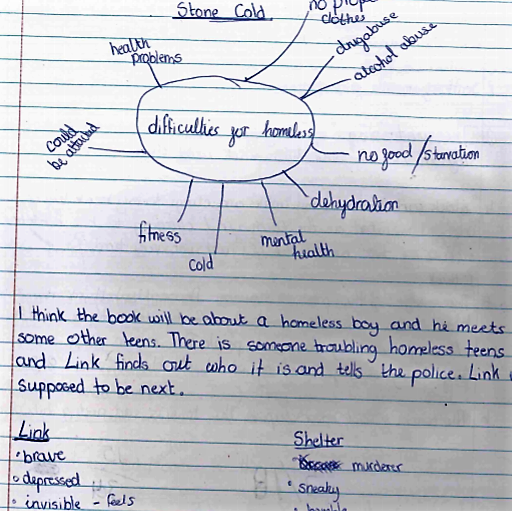 Stone Cold
no prop
clothes
drugabuse
alcohol abuse
health
problems
could
be attacked
difficulties for homeless
no food / starvation
dehydration
mental
health
cold
fitness
I think the book will be about a homeless boy and he meets
some other teens. There is someone troubling homeless teens
and Link finds out who it is and tells the police. Link
supposed to be next.
Link
• brave
• depressed
• invisible - feels
Shelter
murderer
• sneaky